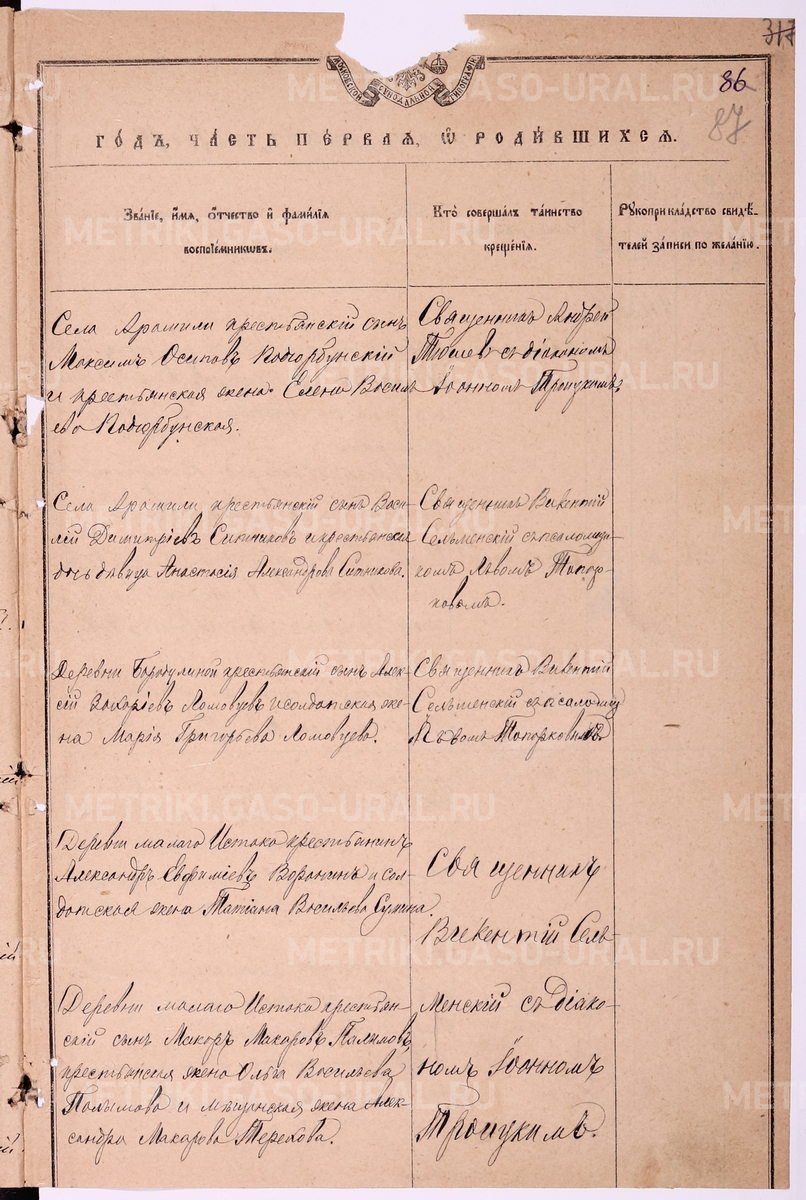 317
МОСКОВСКОЙ СѴНОДАЛЬНОЙ ТИПОГРАФІИ
86
87
ГО́ДЪ, ЧА́СТЬ ПЕ́РВАЯ, Ѡ҆ РОДИ́ВШИХСЯ.
Зва́нїе, и҆́мя, ѻ҆́тчество и҆ фами́лїя
воспрїе́мникѡвъ.
Кто̀ соверша́лъ та́инство
креще́нїя.
Рꙋкоприкла́дство свидѣ́-
телей за́писи по жела́нїю.
Села Арамили крестьянскій сынъ
Максимъ Осиповъ Подгорбунскій
и крестьянская жена Елена Василь
ева Подгорбунская.
Священникъ Андрей
съ діакономъ
Іоанномъ Троицкимъ
Села Арамили крестьянскій сынъ Васи-
лій Димитріевъ Ситниковъ и крестьянская
дочь дѣвица Анастасія Александрова Ситникова.
Священникъ Викентій
Сельменскій съ псаломщи-
комъ Львомъ Топор-
ковымъ.
Деревни Бородулиной крестьянскій сынъ Алек-
сій Захаріевъ Ломовцевъ и солдатская же-
на Марія Григорьева Ломовцева.
Священникъ Викентій
Сельменскій съ псаломщ
Львомъ Топорковымъ.
Деревни малаго Истока крестьянинъ
Александръ Евфиміевъ Воронинъ и сол-
датская жена Татіана Васильева Сумина.
Священникъ
Викентій Сель-
Деревни малаго Истока крестьян-
скій сынъ Макаръ Макаровъ Палкимовъ,
крестьянская жена Ольга Васильева
и мѣщанская жена Алек-
сандра Макарова Терехова.
менскій съ діако-
номъ Іоанномъ
Троицкимъ.
METRIKI.GASO-URAL.RU